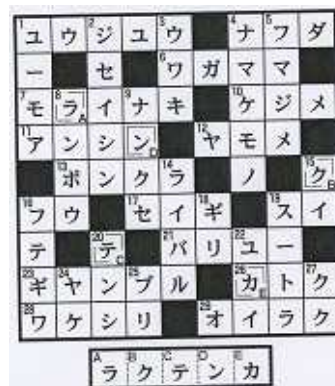 1ユ ウ 2ジ ユ 3ウ 4ナ 5フ ダ
ー セ 6ワ ガ マ マ
7モ 8ラA イ 9ナ キ 10ケ ジ メ
11ア ン シ ンD 12ヤ モ メ
13ボ ン ク 14ラ ノ 15クB
16フ ウ 17セ イ 18ギ 19ス イ
テ 20テC 21バ リ 22ユ ー
23ギ 24ヤ ン 25ブ ル 26カE ト 27ク
28ワ ケ シ リ 29オ イ ラ ク
A B C D E
ラ ク テ ン カ